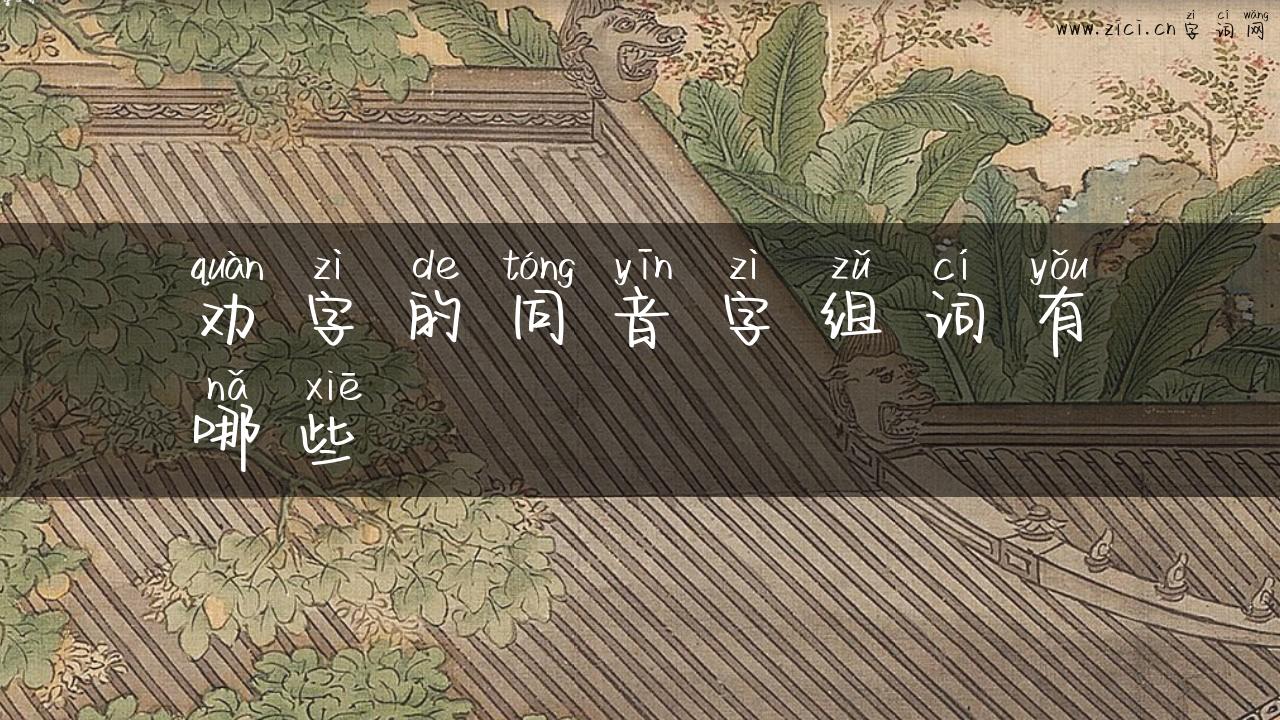 zì cí wǎng
www.zici.cn 字词网
quàn zì de tóng yīn zì zǔ cí yǒu
劝字的同音字组词有
nǎ xiē
哪些